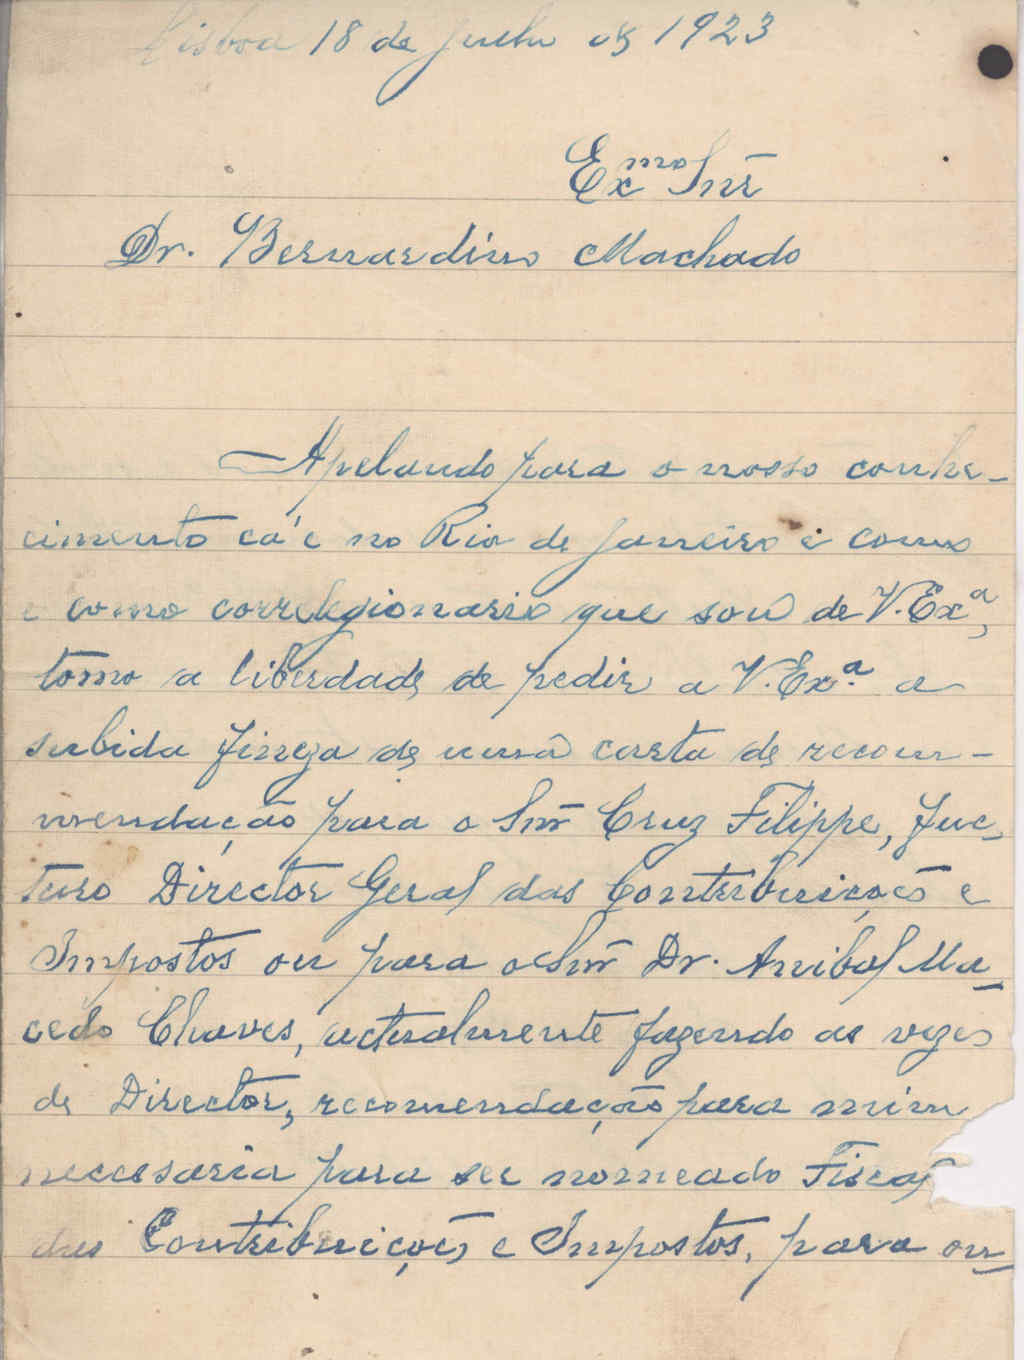 Lisboa 18 de Julho de 1923
Exmo Snr
Dr. Bernardino Machado
Apelando para o nosso conhe-
cimento cá e no Rio de Janeiro e como
e como correlegionario que sou de V. Exª,
tomo a liberdade de pedir a V. Exª. a
subida fineza de uma carta de recom-
mendação para o Snr Cruz Filippe, fuc-
turo Director Geral das Contribuições e
Impostos ou para o Snr Dr. Anibal Ma-
cedo Chaves, actualmente fazendo as vezes
de Director, recomendação para mim
necessaria para ser nomeado Fiscal
das Contribuições e Impostos, para ou-